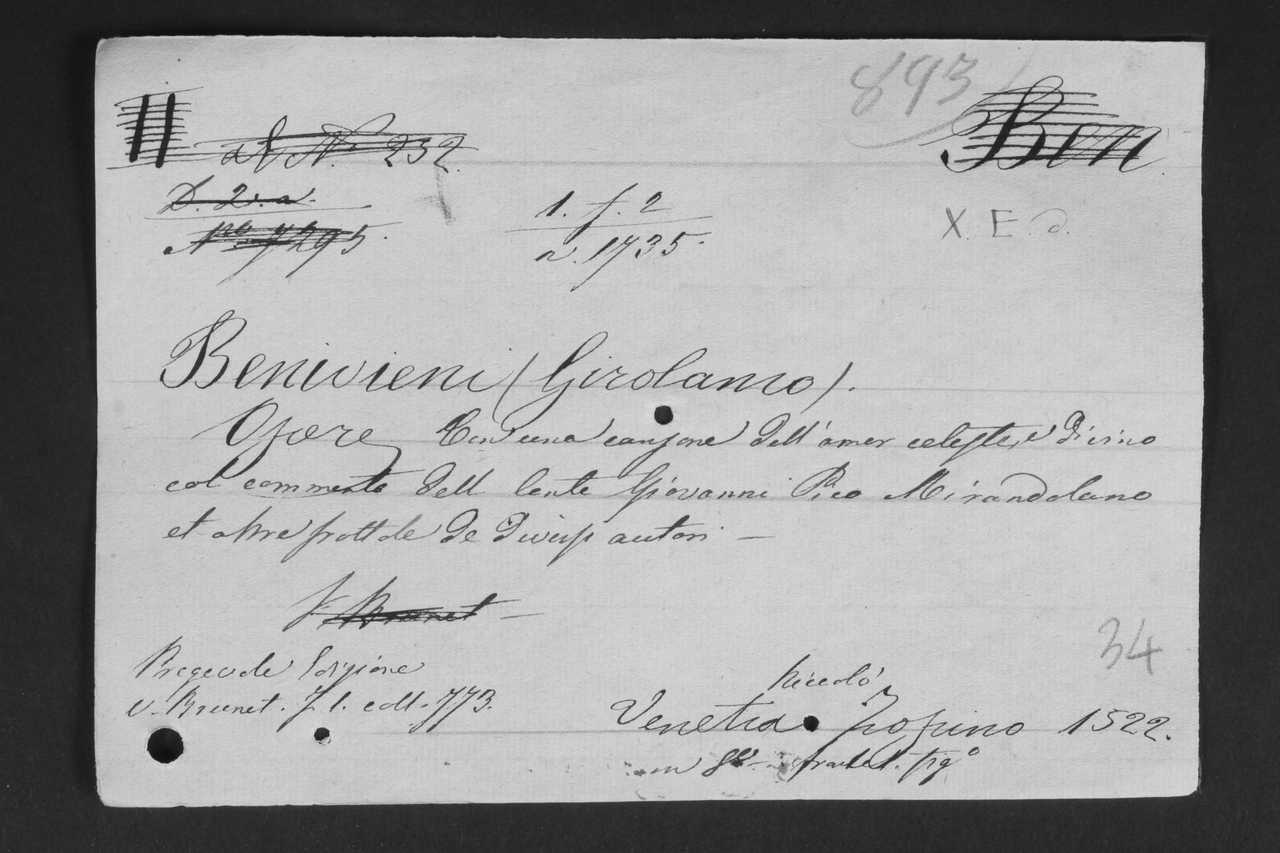 893
Ben
N. 232.
D. 2. a.
Nro. 7295.
1. f. 2
n. 1735.
X. E d.
Benivieni (Girolamo).
Opere Con una canzone dell'amor celeste, e divino
col commento dell Conte Giovanni Pico Mirandolano
et altre frottole de diversi autori —
V. Brunet —
Pregevole Edizione
v. Brunet. T. 1. coll. 773.
34
Niccolò
Venetia Zoppino 1522.
in 8º frontet. figº